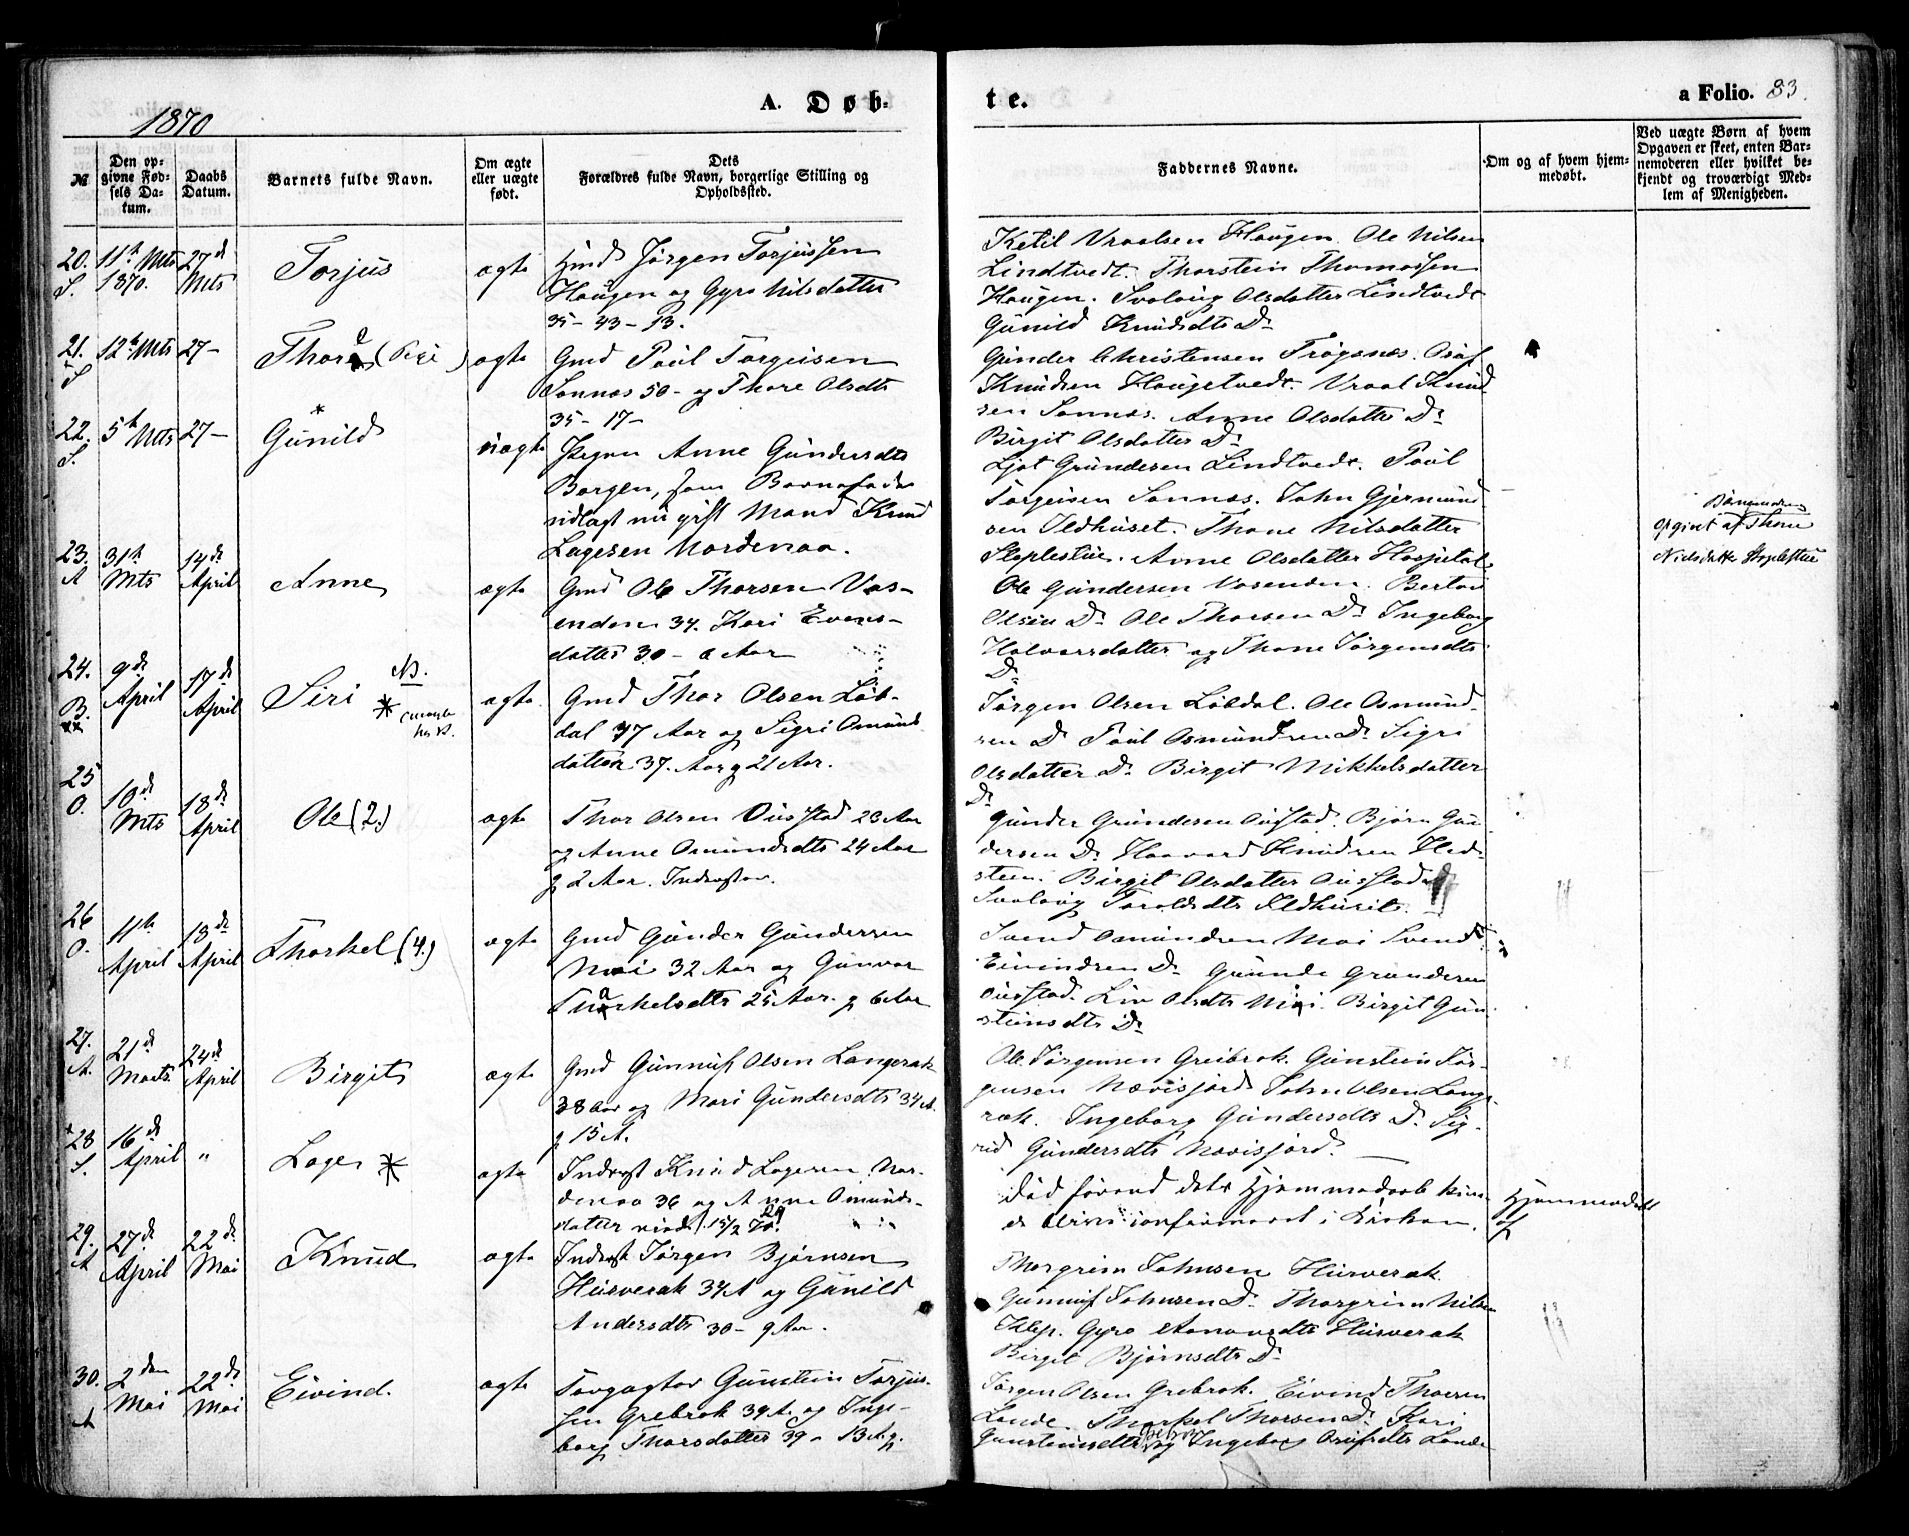 1870
A. Døb-
te.
a Folio. 83.
№
Den op-
givne Fød-
sels Da-
tum.
Daabs
Datum.
Barnets fulde Navn.
Om ægte
eller uægte
født.
Dets
Forældres fulde Navn, borgerlige Stilling og
Opholdssted.
Faddernes Navne.
Om og af hvem hjem-
medøbt.
Ved uægte Børn af hvem
Opgaven er skeet, enten Bar-
nemoderen eller hvilket be-
kjendt og troværdigt Med-
lem af Menigheden.
20.
S.
11te Mts
1870.
27de
Mts
Torjus
ægte
Jørgen Torjussen
Haugen og Gyro Nilsdatter
35 - 43 - 13.
Ketil Vraalsen Haugen. Ole Nilsen
Lindtvedt. Thorstein Thomassen
Haugen. Svalaug Olsdatter Lindtvedt
Gunild Knudsdtr Do
21.
S
12te Mts
27 -
Thord
ægte
Gmd Paul Torgeisen
Sonnæs 50 - og Thore Olsdtr
35 - 17 -
Gunder Christensen Trøgsnæs. Osuf
Knudsen Haugetvedt. Vraal Knud
sen Sonnæs. Anne Olsdatter Do
Birgit Olsdatter Do
22.
S.
5te Mts
27 -
Gunild *
uægte
Pigen Anne Gundersdtr
Borgen, som Barnefader
udlagt nu gift Mand Knud
Lagesen Nordenaa.
Ljot Gundersen Lindtvedt. Paul
Torgeisen Sonnæs. John Gjermund
sen Ildhuset. Thone Nilsdatter
Stoplestue. Anne Olsdatter Haspetal
Barnemoderen
opgivet af Thone
Nielsdatter Stoplestue
23.
A
31te
Mts
14de
April
Anne
ægte
Gmd Ole Thorsen Vas-
enden 34. Kari Evens-
datter 30 - 0 Aar
Ole Gundersen Vasenden. Berton
Olsen Do Ole Thorsen Do Ingeborg
Halvorsdatter og Thone Jørgensdtr
Do
24.
B.
9de
April
17de
April
Siri * NB.
ægte
Gmd Thor Olsen Løb-
dal 37 Aar og Sigri Omund
datter 37. Aar g 21 Aar.
Jørgen Olsen Løbdal. Ole Osmund-
sen Do Paul Osmundsen Do Sigri
Olsdatter Do Birgit Mikkelsdatter
Do
25
O.
10de
Mts
18de
April
Ole (2.)
ægte
Thor Olsen Ousstad 23 Aar
og Anne Omundsdtr 24 Aar
g 2 Aar. Inderstov.
Gunder Gundersen Ousstad. Bjørn Gun
dersen Do Haavard Knudsen Hed-
stein. Birgit Olsdatter Ousstad
Svalaug Taraldsdtr Ildhuset.
26
O.
11te
April
18de
April
Thorkel (4.)
ægte
Gmd Gunder Gundersen
Moi 32 Aar og Gunvor
Thorkelsdtr 25 Aar. g 6 Aar
Svend Omundsen Moi Svend
Eivindsen Do Gunder Gundersen
Ousstad. Liv Olsdtr Moi. Birgit Gun
steinsdtr Do
27.
A.
21de
Marts.
24de
April
Birgit
ægte
Gmd Gunnuf Olsen Langerak
38 Aar og Mari Gundersdtr 34 A.
g 15 A.
Ole Jørgensen Greibrok. Gunstein Jør-
gensen Navisjord John Olsen Lange
rak. Ingeborg Gundersdtr Do Sig-
rid Gundersdtr Navisjord.
28
S.
16de
April
"
Lage *
ægte
Inderst Knud Lagesen Nor-
denaa 36 og Anne Omunds-
datter
Død førend dets Hjemmedaab kun
i Kirken.
Hjemmedøbt
af
29.
A
27de
April
22de
Mai
Knud
ægte
Inderst Jørgen Bjørnsen
Husverak 34 A og Gunild
Andersdtr 30 - 9 Aar.
Thorgrim Johnsen Husverak
Gunnuf Johnsen Do Thorgrim Nilsen
Klep. Gyro Aanonsdtr Husverak
Birgit Bjørnsdtr Do
30.
A
2den
Mai
22de
Mai
Eivind.
ægte
Gunstein Torjus-
sen Grebrok 39 A. og Inge-
borg Thorsdatter 39 - 13 A. g.
Jørgen Olsen Grebrok. Eivind Thorsen
Lande. Thorkel Thorsen Do Kari
Gunsteinsdtr og Ingeborg Osufsdtr Lande